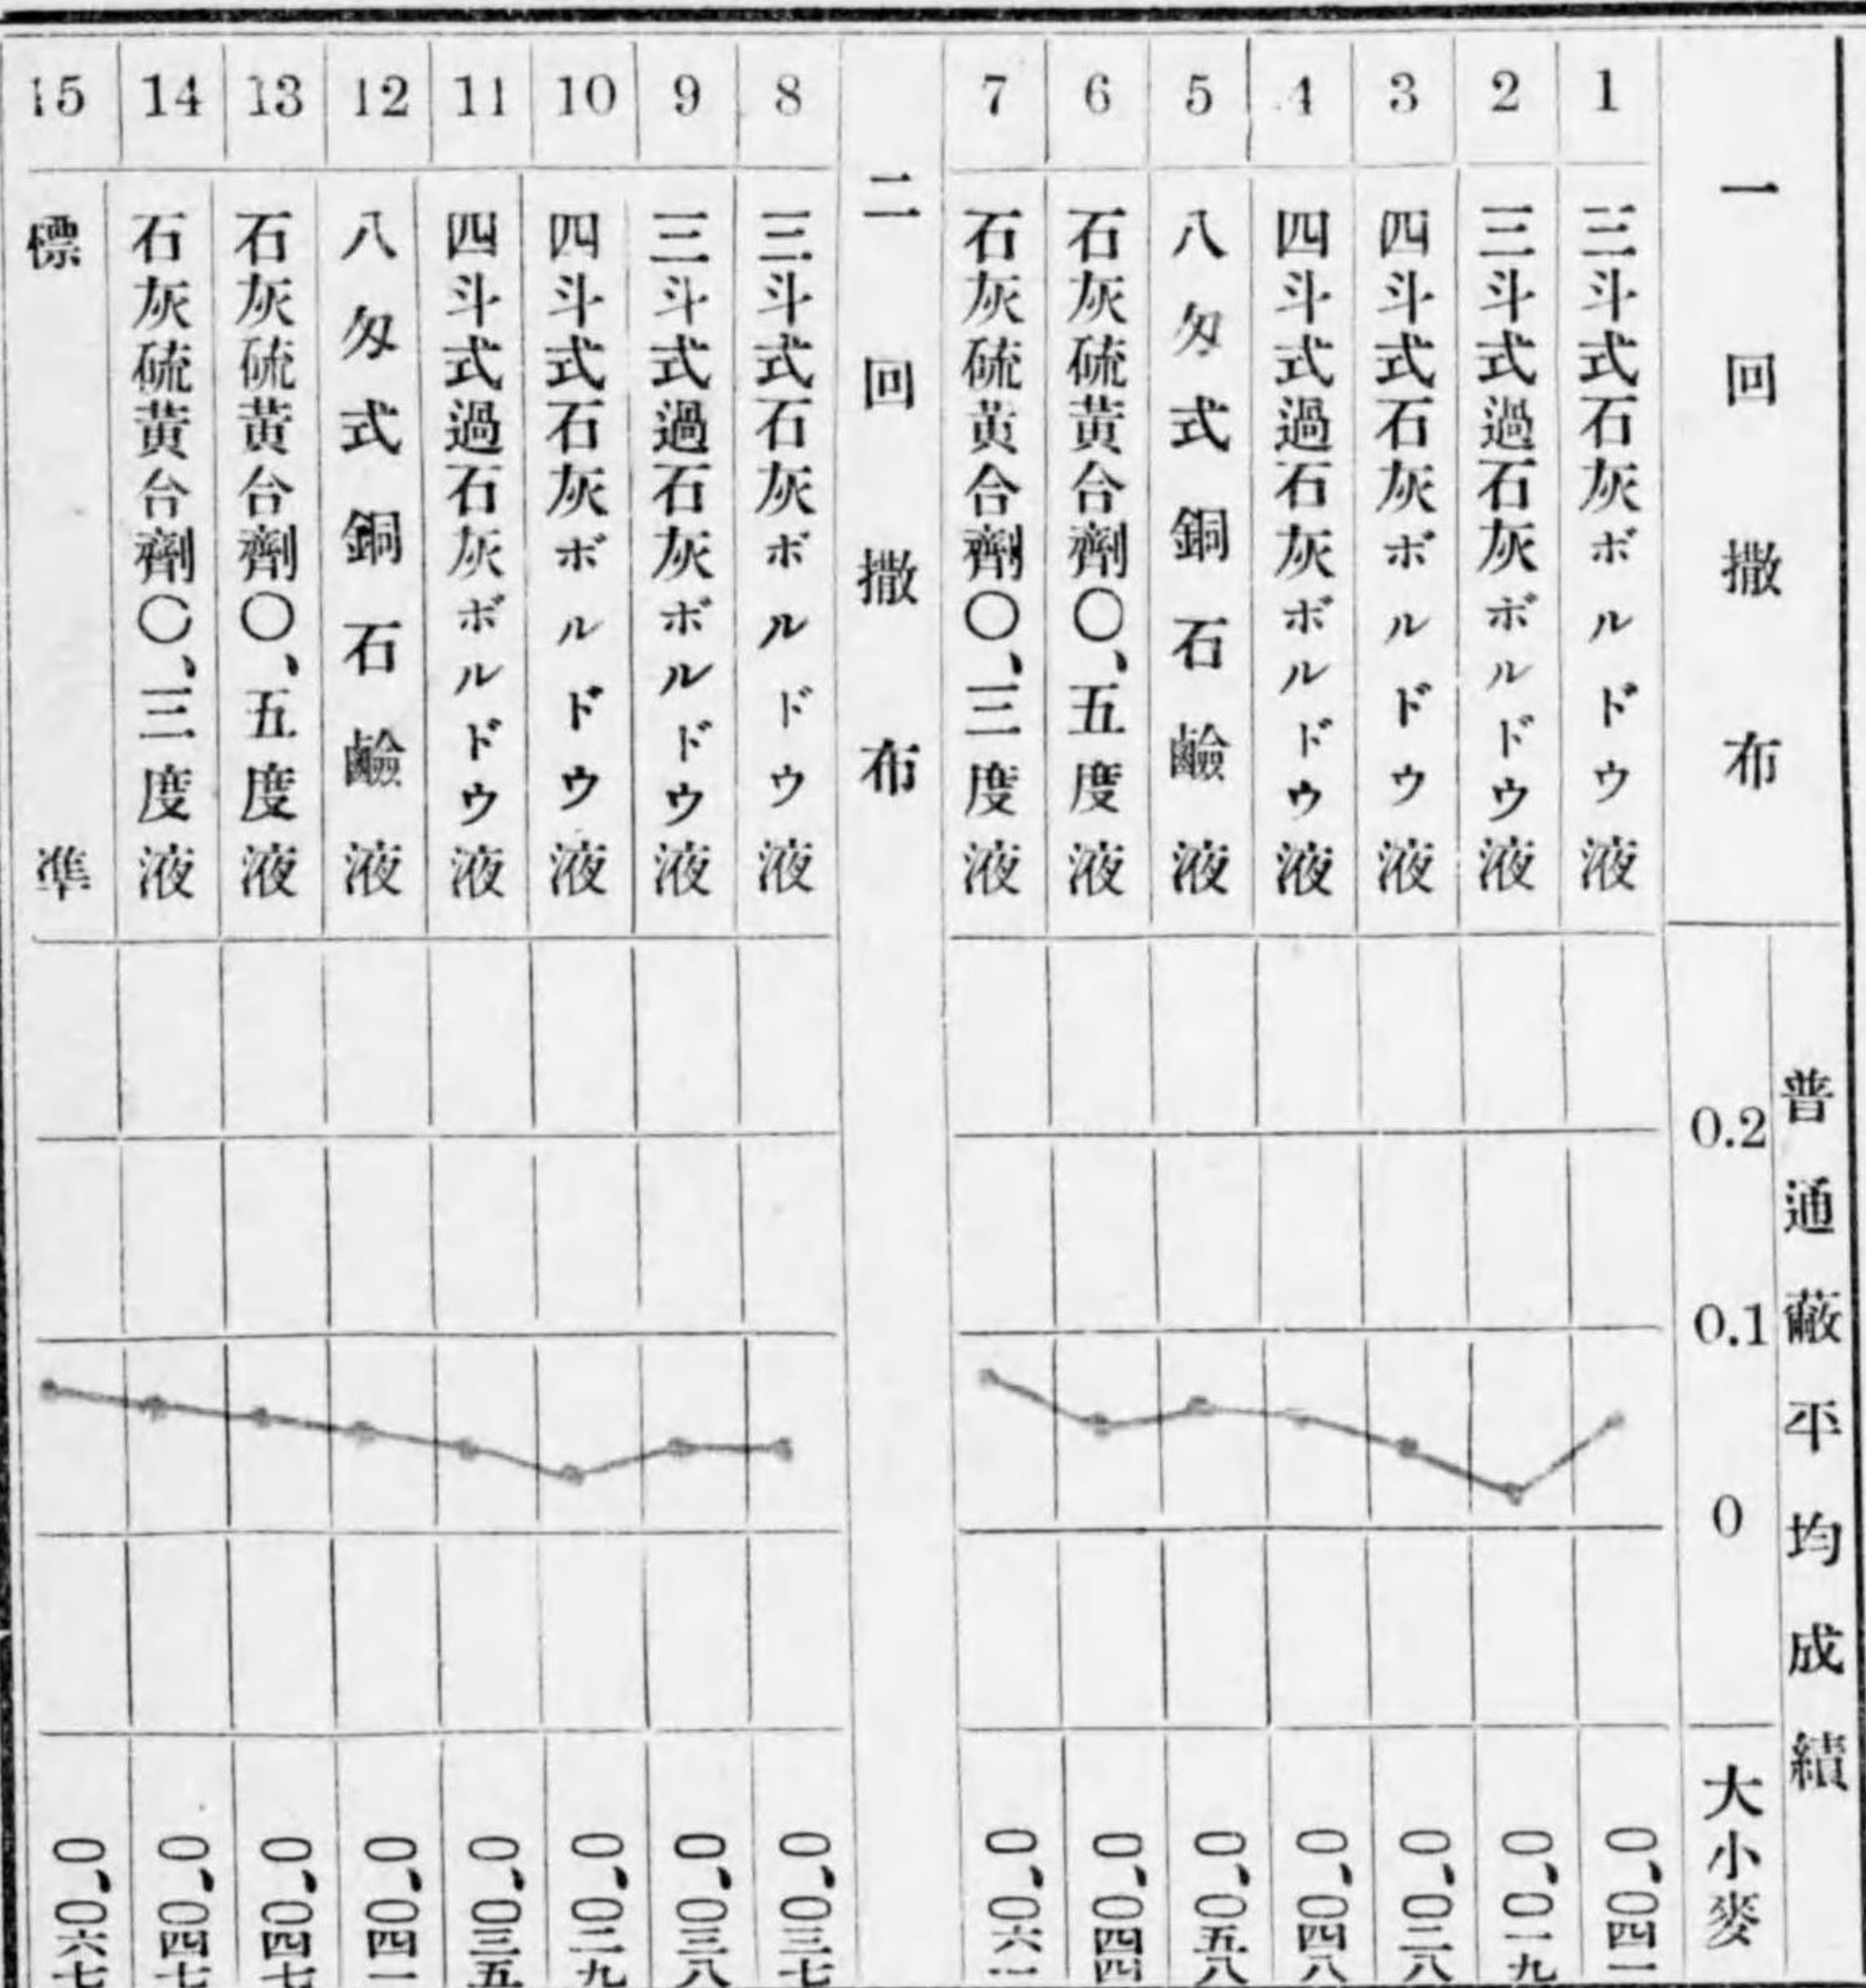 普通蔽平均成績
一回撒布
0.2
0.1
0
大小麥
1
三斗式石灰ボルドウ液
〇、〇四一
2
三斗式過石灰ボルドウ液
〇、〇一九
3
四斗式石灰ボルドウ液
4
四斗式過石灰ボルドウ液
〇、〇四八
5
八匁式銅石鹼液
〇、〇五八
6
石灰硫黃合劑〇、五度液
〇、〇四四
7
石灰硫黃合劑〇、三度液
二回撒布
8
三斗式石灰ボルドウ液
〇、〇三七
9
三斗式過石灰ボルドウ液
〇、〇三八
10
四斗式石灰ボルドウ液
〇、〇二九
11
四斗式過石灰ボルドウ液
〇、〇三五
12
八匁式銅石鹼液
〇、〇四一
13
石灰硫黃合劑〇、五度液
〇、〇四七
14
石灰硫黃合劑〇、三度液
〇、〇四七
15
標準
〇、〇六七